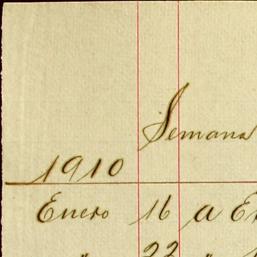 Semana
1910
Enero 16 a E
" 22 "